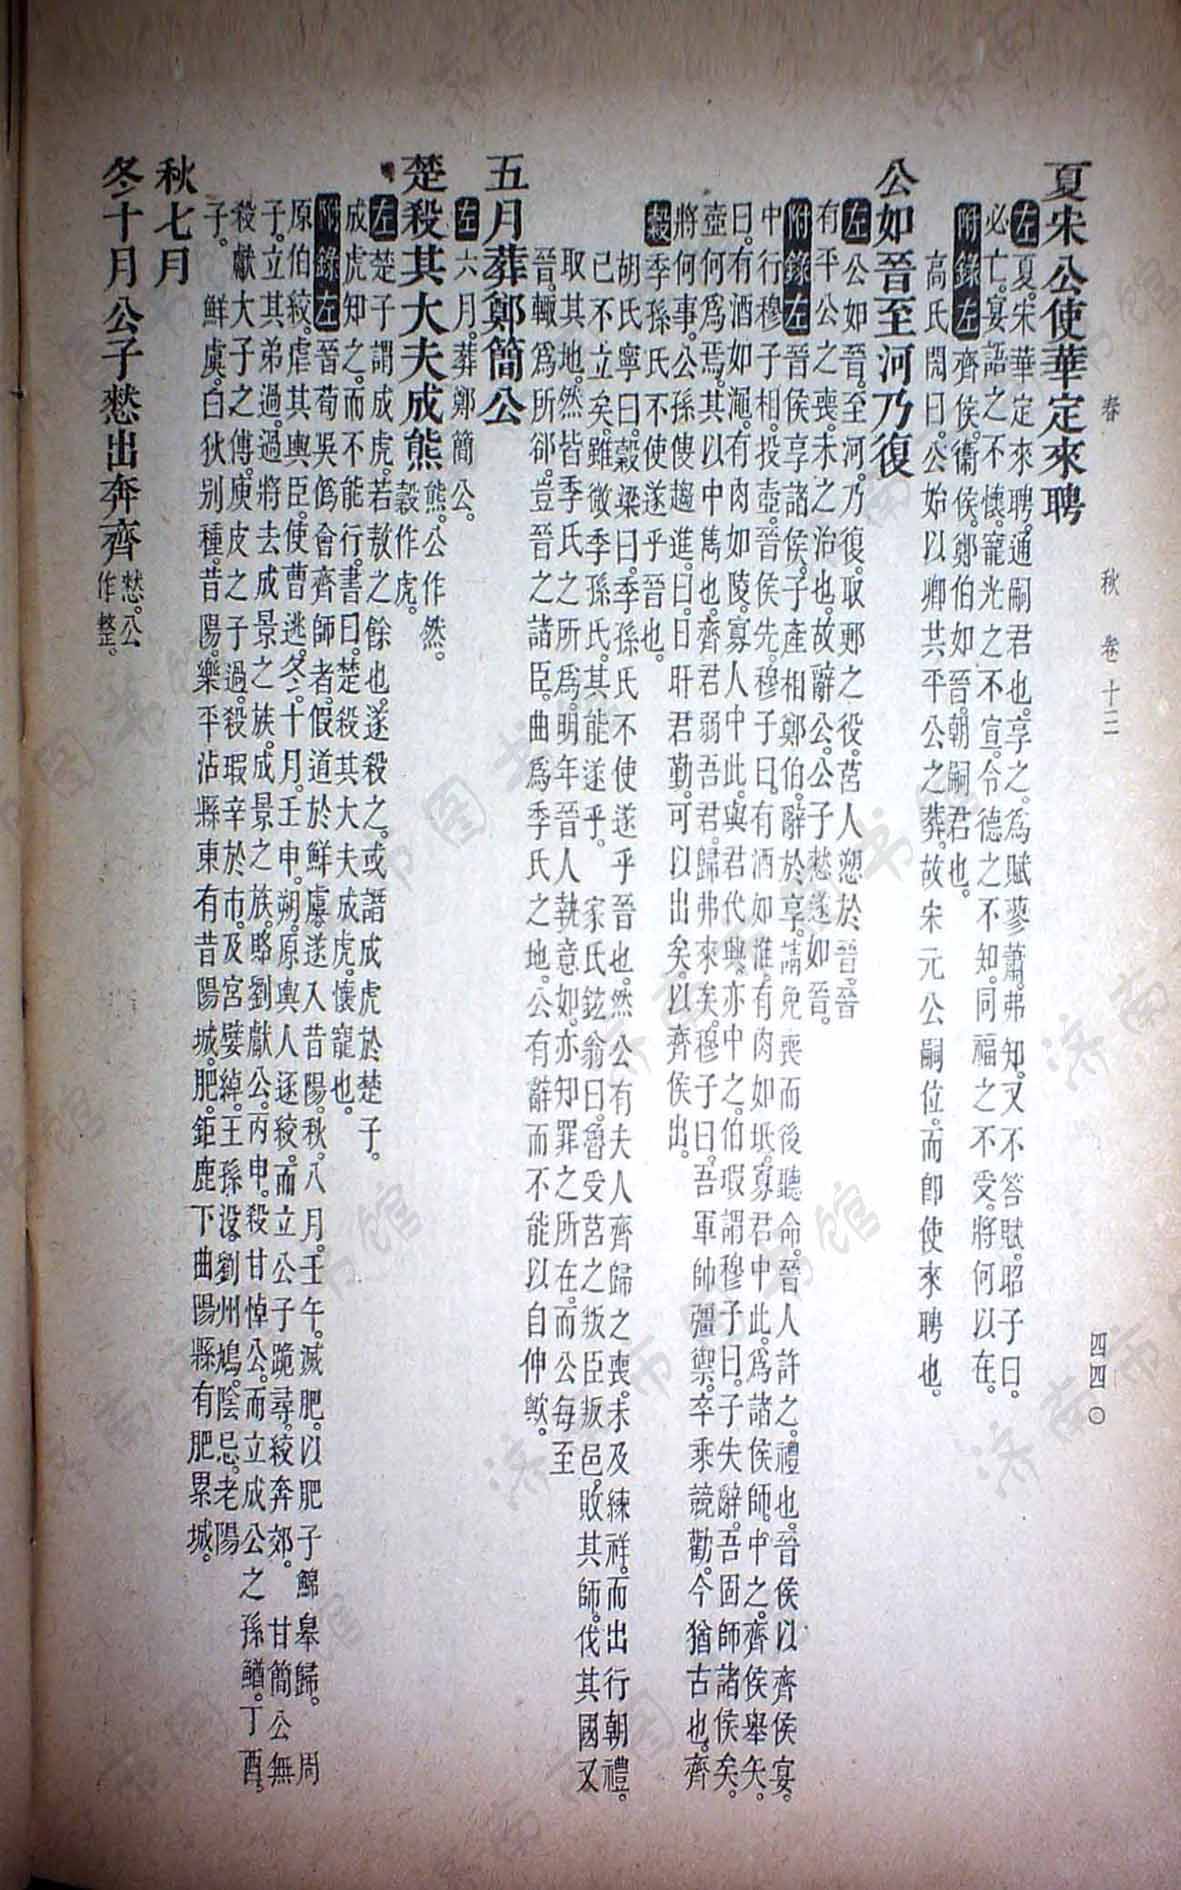 春　秋　卷十二　四四〇
夏宋公使華定來聘
左夏。宋華定來聘。通嗣君也。享之。爲賦蓼蕭。弗知。又不答賦。昭子曰。
必亡。宴語之不懷。寵光之不宣。令德之不知。同福之不受。將何以在。
附錄左齊侯。衞侯。鄭伯如晉。朝嗣君也。
高氏閌曰。公始以卿共平公之葬。故宋元公嗣位。而卽使來聘也。
公如晉至河乃復
左公如晉。至河。乃復。取郠之役。莒人愬於晉。晉
有平公之喪。未之治也。故辭公。公子憖遂如晉。
附錄左晉侯享諸侯。子產相鄭伯。辭於享。請免喪而後聽命。晉人許之。禮也。晉侯以齊侯宴。
中行穆子相。投壺。晉侯先。穆子曰。有酒如淮。有肉如坻。寡君中此。爲諸侯師。中之。齊侯舉矢。
曰。有酒如澠。有肉如陵。寡人中此。與君代興。亦中之。伯瑕謂穆子曰。子失辭。吾固師諸侯矣。
壺何爲焉。其以中雋也。齊君弱吾君。歸弗來矣。穆子曰。吾軍帥彊禦。卒乘競勸。今猶古也。齊
將何事。公孫傁趨進。曰。日旰君勤。可以出矣。以齊侯出。
穀季孫氏不使遂乎晉也。
胡氏寧曰。穀梁曰。季孫氏不使遂乎晉也。然公有夫人齊歸之喪。未及練祥。而出行朝禮。
已不立矣。雖微季孫氏。其能遂乎。　家氏鉉翁曰。魯受莒之叛臣叛邑。敗其師。伐其國。又
取其地。然皆季氏之所爲。明年晉人執意如。亦知罪之所在。而公每至
晉。輒爲所卻。豈晉之諸臣。曲爲季氏之地。公有辭而不能以自伸歟。
五月葬鄭簡公
左六月。葬鄭簡公。
楚殺其大夫成熊熊。公作然。穀作虎。
左楚子謂成虎。若敖之餘也。遂殺之。或譖成虎於楚子。
成虎知之。而不能行。書曰。楚殺其大夫成虎。懷寵也。
附錄左晉荀吳僞會齊師者。假道於鮮虞。遂入昔陽。秋。八月。壬午。滅肥。以肥子緜皋歸。　周
原伯絞。虐其輿臣。使曹逃。冬。十月。壬申。朔。原輿人逐絞。而立公子跪尋。絞奔郊。　甘簡公無
子。立其弟過。過將去成景之族。成景之族。賂劉獻公。丙申。殺甘悼公。而立成公之孫鰌。丁酉。
殺獻大子之傅。庾皮之子過。殺瑕辛於市。及宮嬖綽。王孫沒。劉州鳩。陰忌。老陽
子。　鮮虞。白狄別種。昔陽。樂平沾縣東有昔陽城。肥。鉅鹿下曲陽縣有肥累城。
秋七月
冬十月公子憖出奔齊憖。公作整。